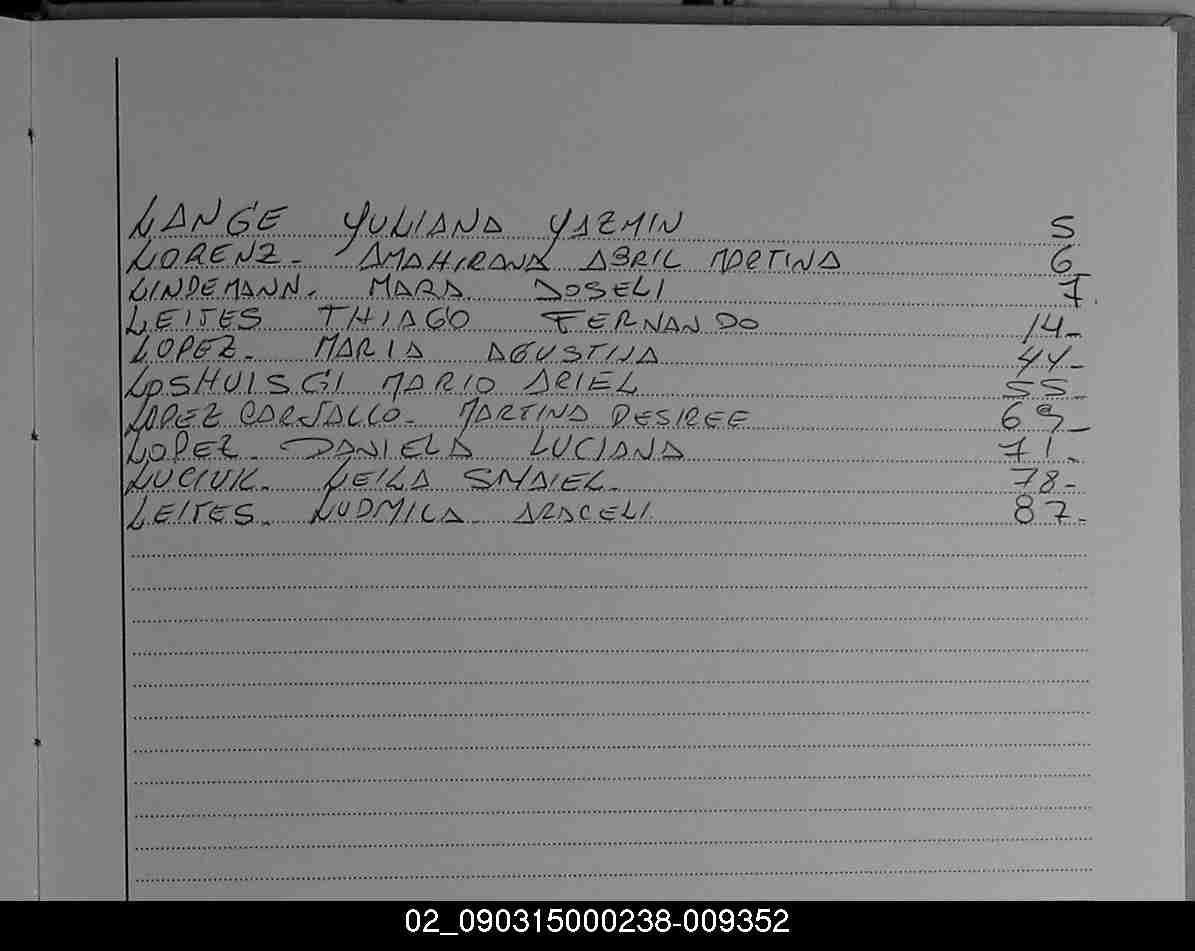 LANGE YULIANA YAZMIN 5
LORENZ- AMAHIRANA ABRIL MARTINA 6_
LINDEMANN. MARA JOSELI 7.
LEITES THIAGO FERNANDO 14-
LOPEZ- MARIA AGUSTINA 44-
LOSHUISGI MARIO ARIEL 55_
LOPEZ CARVALLO- MARTINA DESIREE 69_
LOPEZ- DANIELA LUCIANA 71-
LUCIUK- LEILA SMAIEL- 78-
LEITES- LUDMILA- ARACELI. 87-
02_090315000238-009352